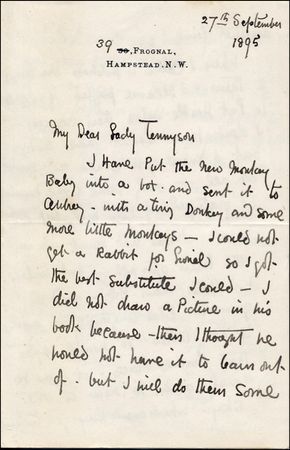 27th September
1895
39 50, FROGNAL,
HAMPSTEAD. N.W.
My Dear Lady Tennyson
I Have Put the New Monkey
Baby into a box - and sent it to
Aubrey - with a tiny Donkey and some
more little Monkeys - I could not
get a Rabbit for Lionel so I got
the best Substitute I could - I
did not draw a Picture in his
book because - then I thought he
would not have it to learn out
of - but I will do them Some